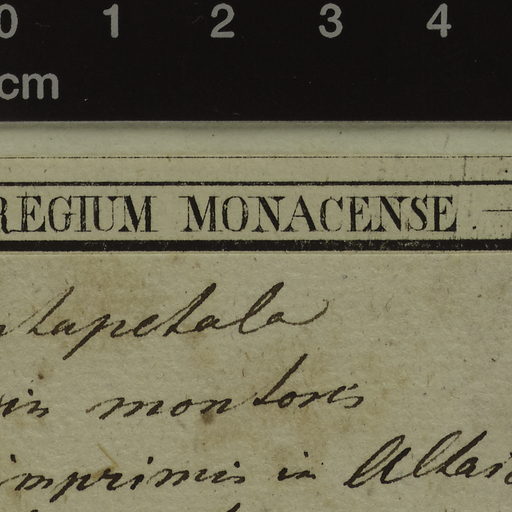 0 1 2 3 4
cm
REGIUM MONACENSE
ntapetala
in montosis
imprimis in Altaic